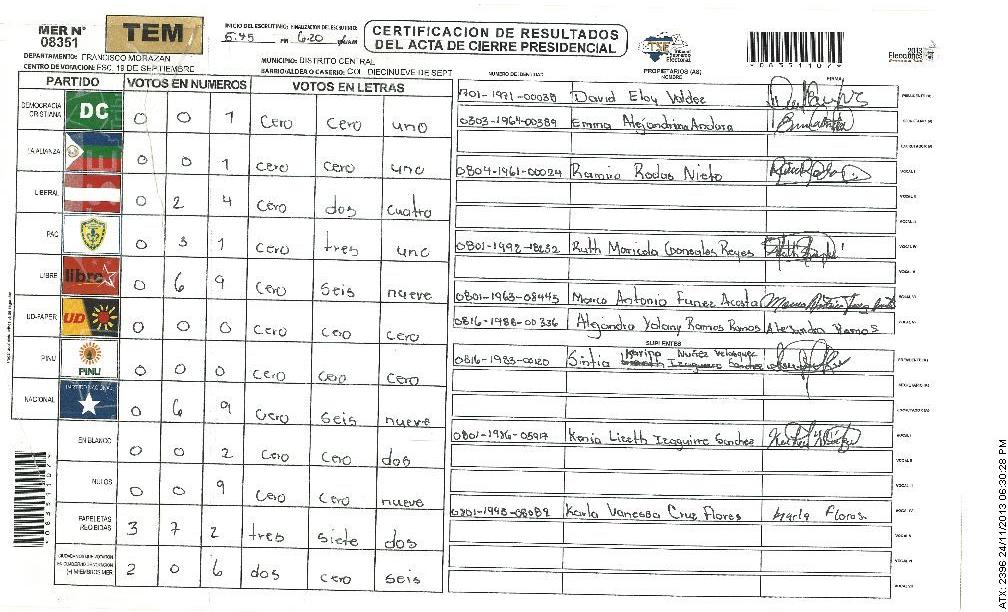 MER N° 08351
TEM
INICIO DEL ESCRUTINIO: FINALIZACION DEL ESCRUTINIO:
5:45 pm 6:20
CERTIFICACIÓN DE RESULTADOS
DEL ACTA DE CIERRE PRESIDENCIAL
TSE Tribunal Supremo Electoral
2013 Elecciones
DEPARTAMENTO: FRANCISCO MORAZAN
MUNICIPIO: DISTRITO CENTRAL
CENTRO DE VOTACION: ESC. 19 DE SEPTIEMBRE
BARRIO/ALDEA O CASERIO: COL DIECINUEVE DE SEPT
PARTIDO VOTOS EN NUMEROS VOTOS EN LETRAS
DEMOCRACIA CRISTIANA DC 0 0 1 cero cero uno
LA ALIANZA 0 0 1 cero cero uno
LIBERAL 0 2 4 cero dos cuatro
PAC 0 3 1 cero tres uno
LIBRE libre 0 6 9 cero seis nueve
UD-FAPER UD 0 0 0 cero cero cero
PINU PINU 0 0 0 cero cero cero
NACIONAL PARTIDO NACIONAL 0 6 9 cero seis nueve
EN BLANCO 0 0 2 cero cero dos
NULOS 0 0 9 cero cero nueve
PAPELETAS RECIBIDAS 3 7 2 tres siete dos
CIUDADANOS QUE VOTARON EN CUADERNO DE VOTACION (+) MIEMBROS MER 2 0 6 dos cero seis
NUMERO DE IDENTIDAD PROPIETARIOS (AS) NOMBRE FIRMA
1701-1971-00038 David Eloy Valdez PRESIDENTE (A)
0303-1964-00389 Emma Alejandrina Andara SECRETARIO (A)
ESCRUTADOR (A)
0804-1961-00024 Ramiro Rodas Nieto VOCAL I
VOCAL II
VOCAL III
0801-1992-18232 Ruth Maricela Gonsales Reyes VOCAL IV
VOCAL V
0801-1963-08445 Marco Antonio Funez Acosta VOCAL VI
0816-1988-00336 Alejandra Yolany Ramos Ramos Alejandra Ramos
SUPLENTES
0816-1983-00120 Sintia Karina Nuñez Velasquez PRESIDENTE (A)
SECRETARIO (A)
ESCRUTADOR (A)
0801-1986-05917 Kenia Lizeth Izaguirre Sanchez VOCAL I
VOCAL II
VOCAL III
Karla Vanessa Cruz Flores Karla Flores VOCAL IV
VOCAL V
VOCAL VI
VOCAL VII
ATX: 2396 24/11/2013 06:30:28 PM